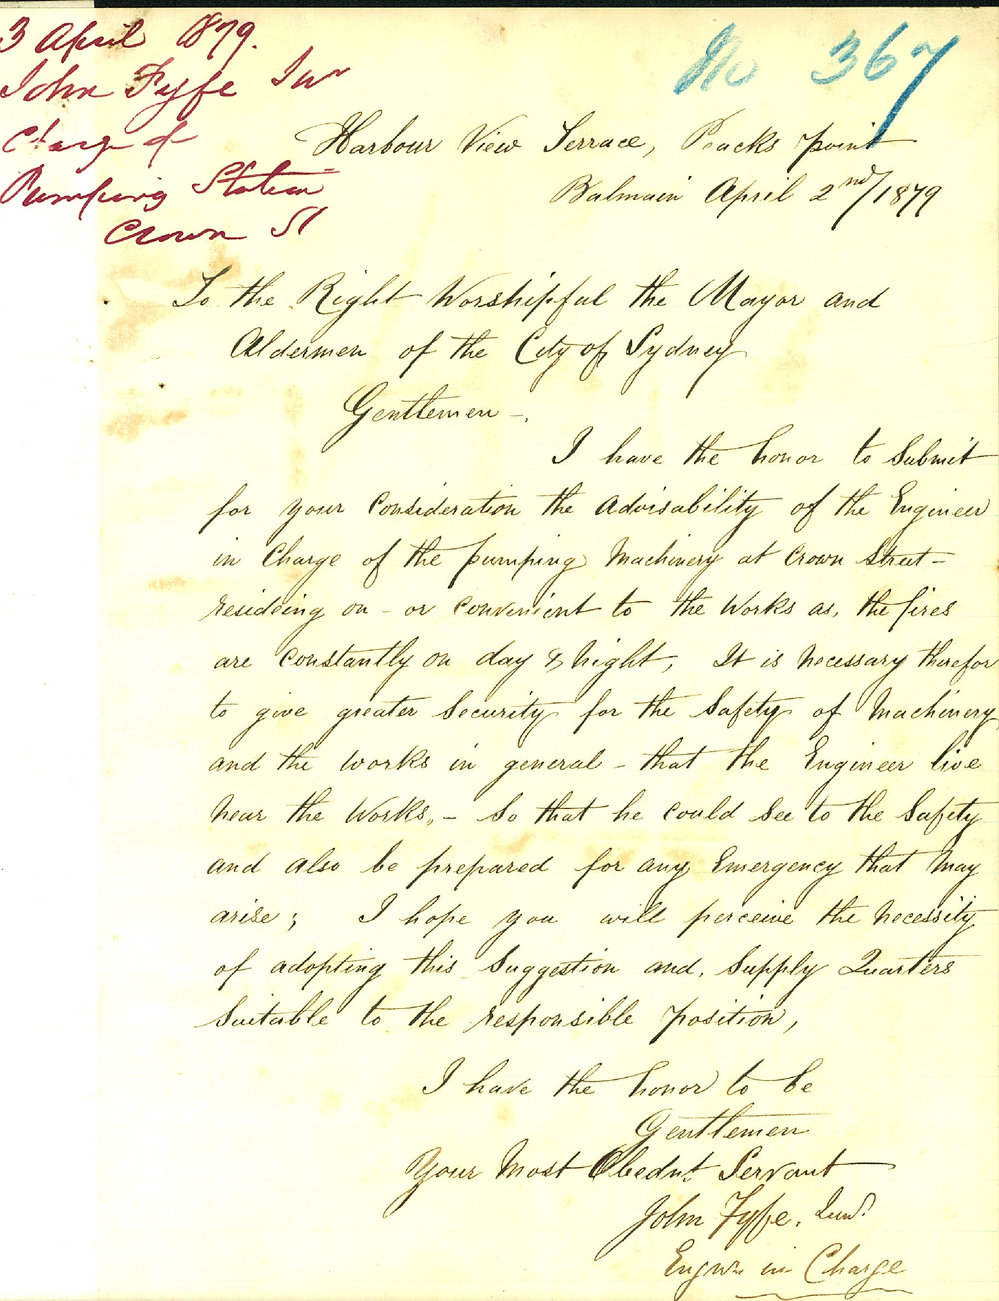 3 April 1879.
John Fyfe Junr
Charge of
Pumping Station
Crown St
No 367
Harbour View Terrace, Peacks point
Balmain April 2nd/1879
To the Right Worshipful the Mayor and
Aldermen of the City of Sydney
Gentlemen -.
I have the honor to Submit
for your Consideration the Advisability of the Engineer
in Charge of the pumping Machinery at Crown Street -
resideing on - or convenient to the Works as, the fires
are Constantly on day & night, It is necessary therefor
to give greater Security for the Safety of Machinery
and the works in general - that the Engineer live
near the Works, - So that he could See to the Safety
and also be prepared for any Emergency that may
arise; I hope you will perceive the necessity
of adopting this Suggestion and, Supply Quarters
Suitable to the responsible position,
I have the honor to be
Gentlemen
Your Most Obednt Servant
John Fyfe, Junr
Engnr in Charge